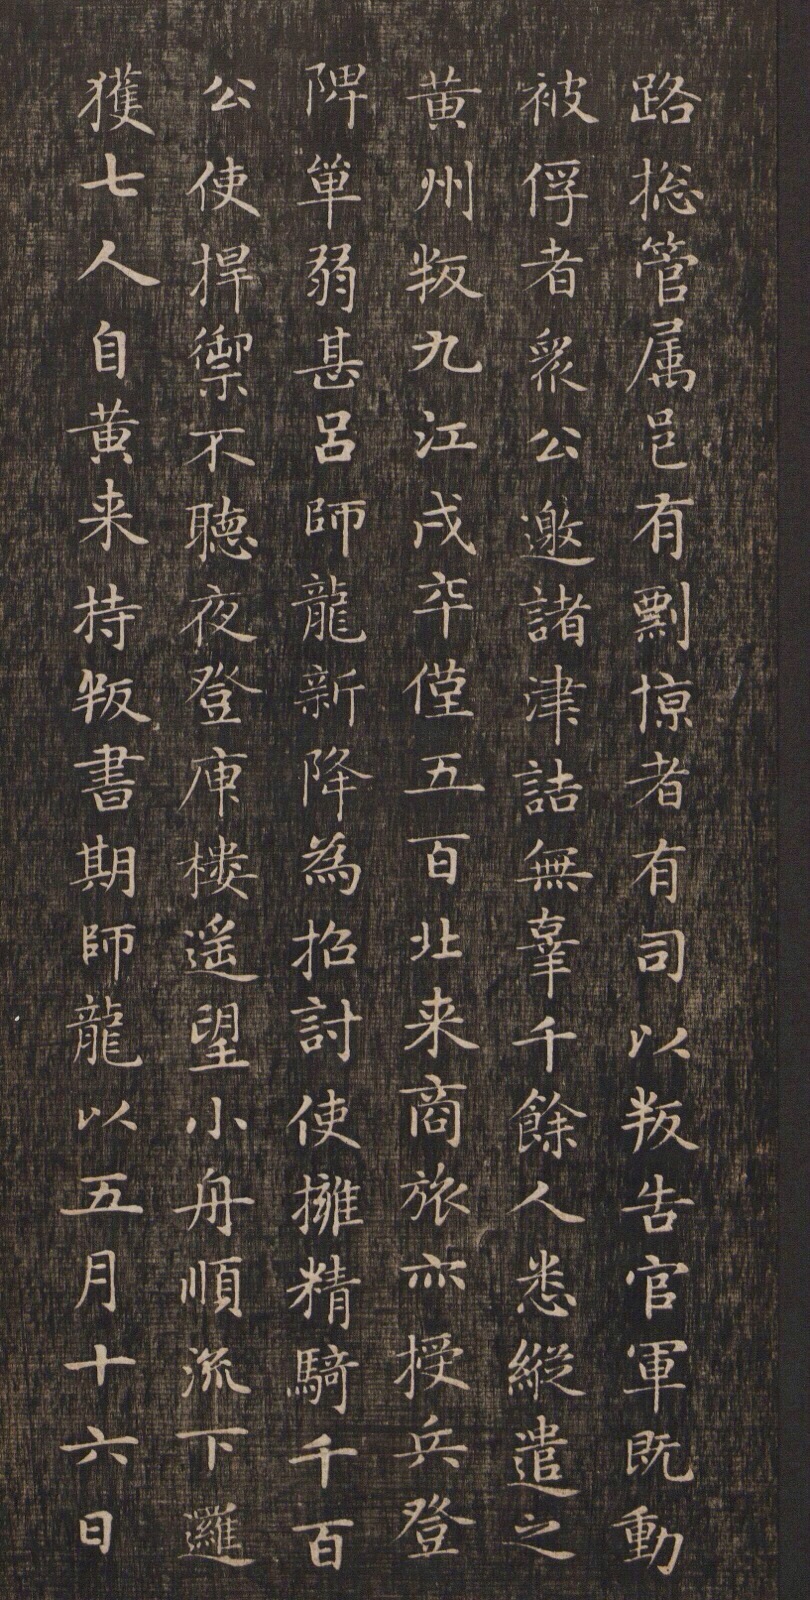 路揔管属邑有剽惊者有司以叛告官軍既動
被俘者衆公邀諸津詰無辜千餘人悉縱遣之
黄州叛九江戍卒僅五百北来商旅亦授兵登
陴単弱甚吕師龍新降為招討使擁精騎千百
公使捍禦不聴夜登庾楼遥望小舟順流下邏
獲七人自黄来持叛書期師龍以五月十六日